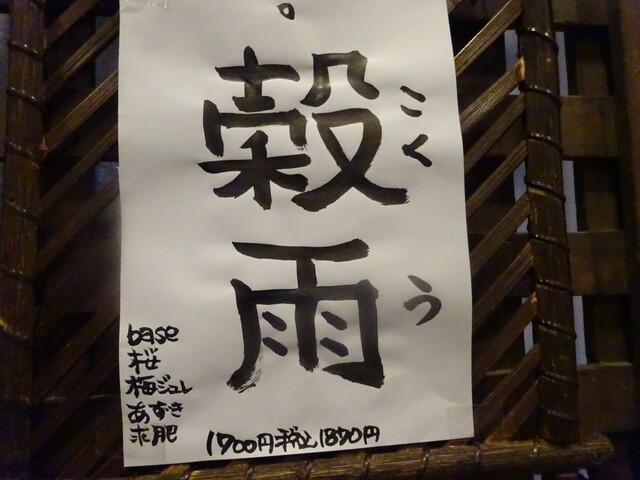 穀雨
こくう
base
桜
梅ジュレ
あずき
求肥
1700円税込1870円